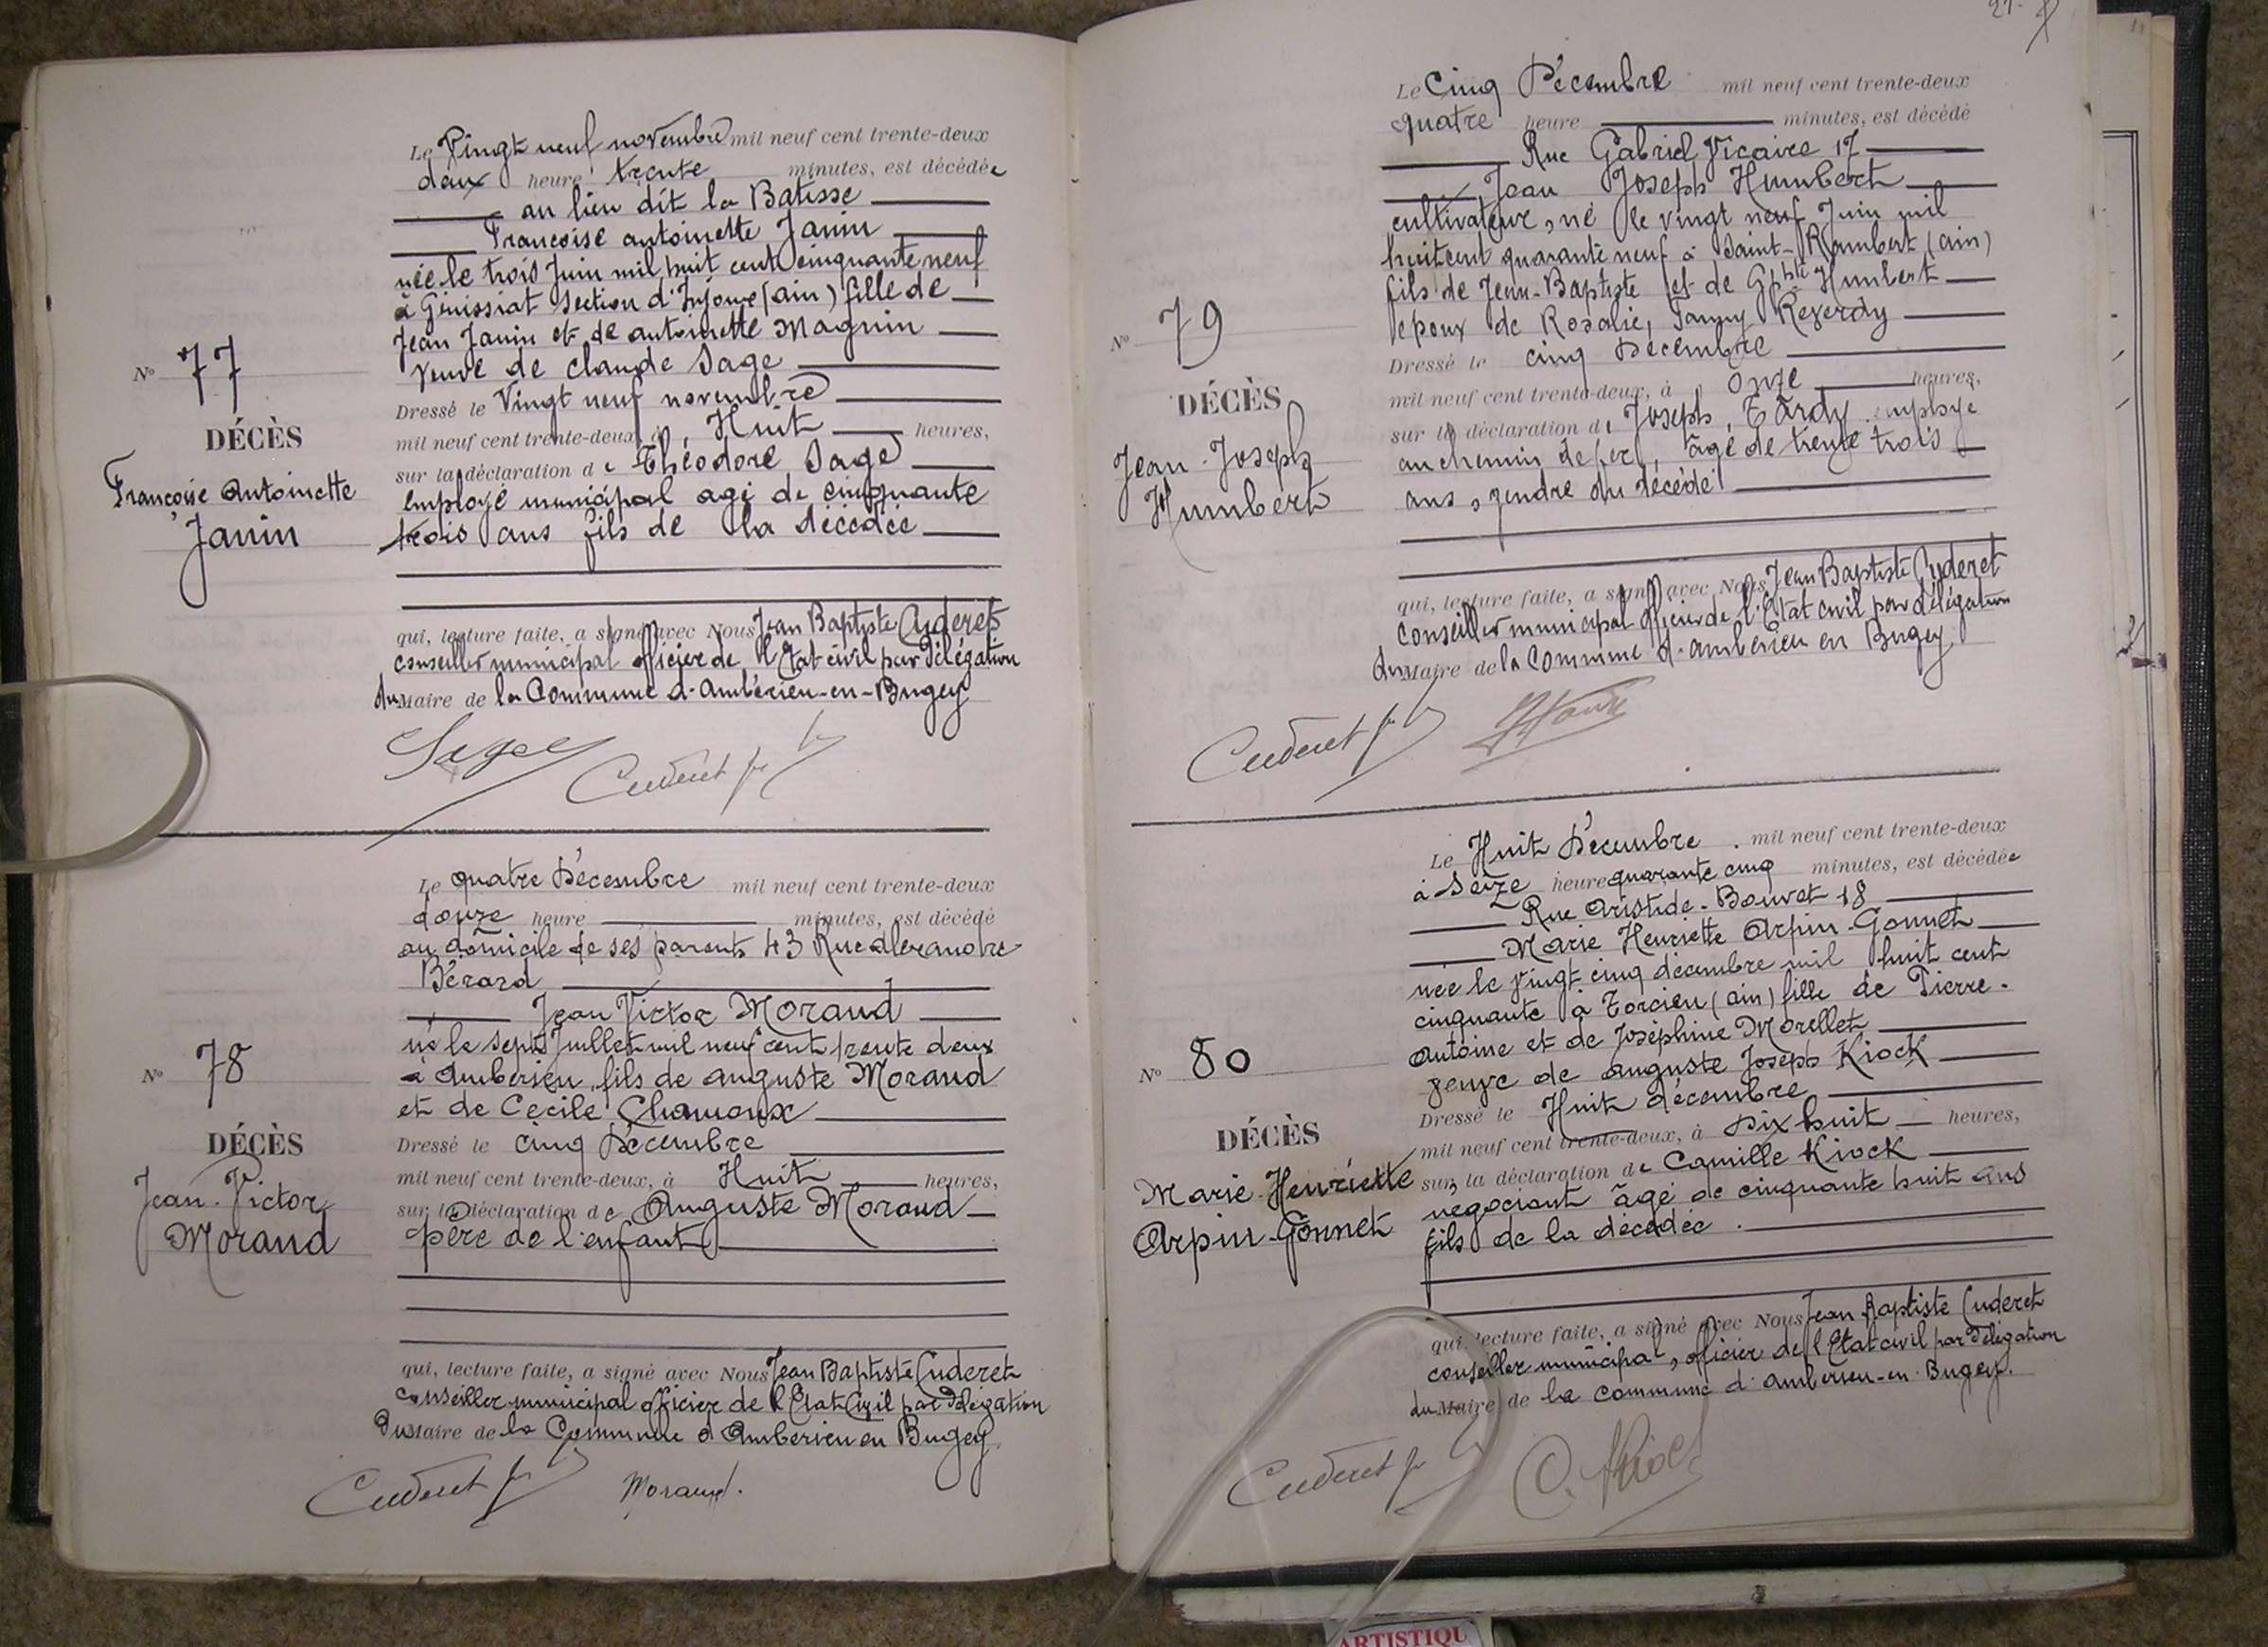 Le Vingt neuf novembre mil neuf cent trente-deux
deux heure trente minutes, est décédée
au lieu dit la Batisse
Françoise antoinette Janin
née le trois Juin mil huit cent cinquante neuf
à Génissiat section d'Injoux (ain) fille de
Jean Janin et de antoinette Magnin
Veuve de claude Sage
Dressé le Vingt neuf novembre
mil neuf cent trente-deux, à Huit heures,
sur la déclaration de Théodore Sage
employé municipal agé de cinquante
trois ans fils de la décédée
qui, lecture faite, a signé avec Nous Jean Baptiste Cuderet
conseiller municipal officier de l'Etat civil par délégation
du Maire de la Commune d'Ambérieu-en-Bugey
N° 77
DÉCÈS
Françoise Antoinette
Janin
Sage Cuderet
Le quatre Décembre mil neuf cent trente-deux
douze heure minutes, est décédé
au domicile de ses parents 43 Rue Alexandre
Bérard
Jean Victor Morand
né le sept Juillet mil neuf cent trente deux
à Amberieu, fils de auguste Morand
et de Cécile Chamoux
Dressé le cinq Décembre
mil neuf cent trente-deux, à Huit heures,
sur la déclaration de Auguste Morand
père de l'enfant
qui, lecture faite, a signé avec Nous Jean Baptiste Cuderet
conseiller municipal officier de l'Etat Civil par délégation
du Maire de la Commune d'Amberieu en Bugey
N° 78
DÉCÈS
Jean-Victor
Morand
Cuderet Morand.
21
Le Cinq Décembre mil neuf cent trente-deux
quatre heure minutes, est décédé
Rue Gabriel Vicaire 17
Jean Joseph Humbert
cultivateur, né le vingt neuf Juin mil
huit cent quarante neuf à Saint-Rambert (ain)
fils de Jean-Baptiste et de Humbert
epoux de Rosalie, Fanny Reverdy
Dressé le cinq Décembre
mil neuf cent trente-deux, à Onze heures,
sur la déclaration de Joseph Tardy employé
au chemin de fer, âgé de trente trois
ans, gendre du décédé
qui, lecture faite, a signé avec Nous Jean Baptiste Cuderet
Conseiller municipal officier de l'Etat civil par délégation
du Maire de la Commune d'amberieu en Bugey
N° 79
DÉCÈS
Jean-Joseph
Humbert
Cuderet
Le Huit Décembre mil neuf cent trente-deux
à Seize heure quarante cinq minutes, est décédée
Rue Aristide-Bouvet 18
Marie Henriette Arpin-Gonnet
née le Vingt cinq décembre mil huit cent
cinquante à Torcieu (ain) fille de Pierre-
Antoine et de Joséphine Morellet
veuve de auguste Joseph Kiock
Dressé le Huit décembre
mil neuf cent trente-deux, à Dix huit heures,
sur la déclaration de Camille Kiock
négociant âgé de cinquante huit ans
fils de la décédée.
qui, lecture faite, a signé avec Nous Jean Baptiste Cuderet
conseiller municipal, officier de l'Etat civil par délégation
du Maire de la commune d'amberieu-en-Bugey.
N° 80
DÉCÈS
Marie-Henriette
Arpin-Gonnet
Cuderet C. Kiock
ARTISTIQU